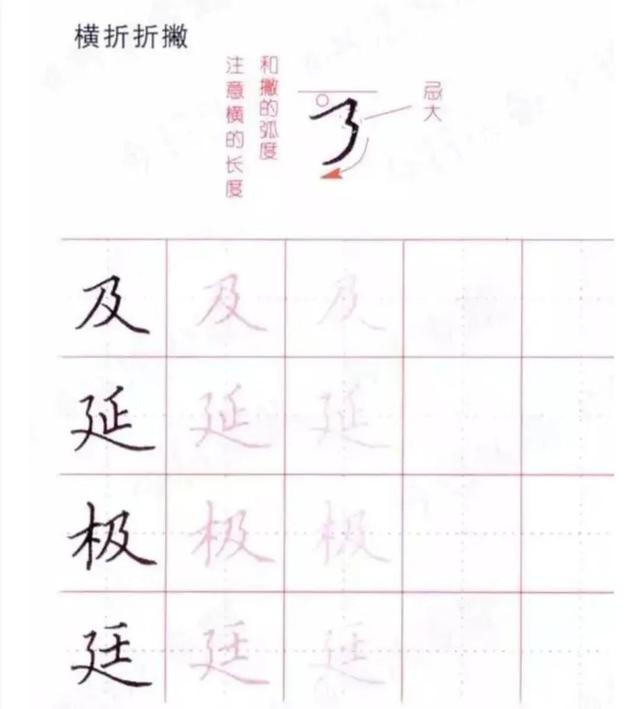 横折折撇
注意横的长度
和撇的弧度
忌大
及 及 及
延 延 延
极 极 极
廷 廷 廷